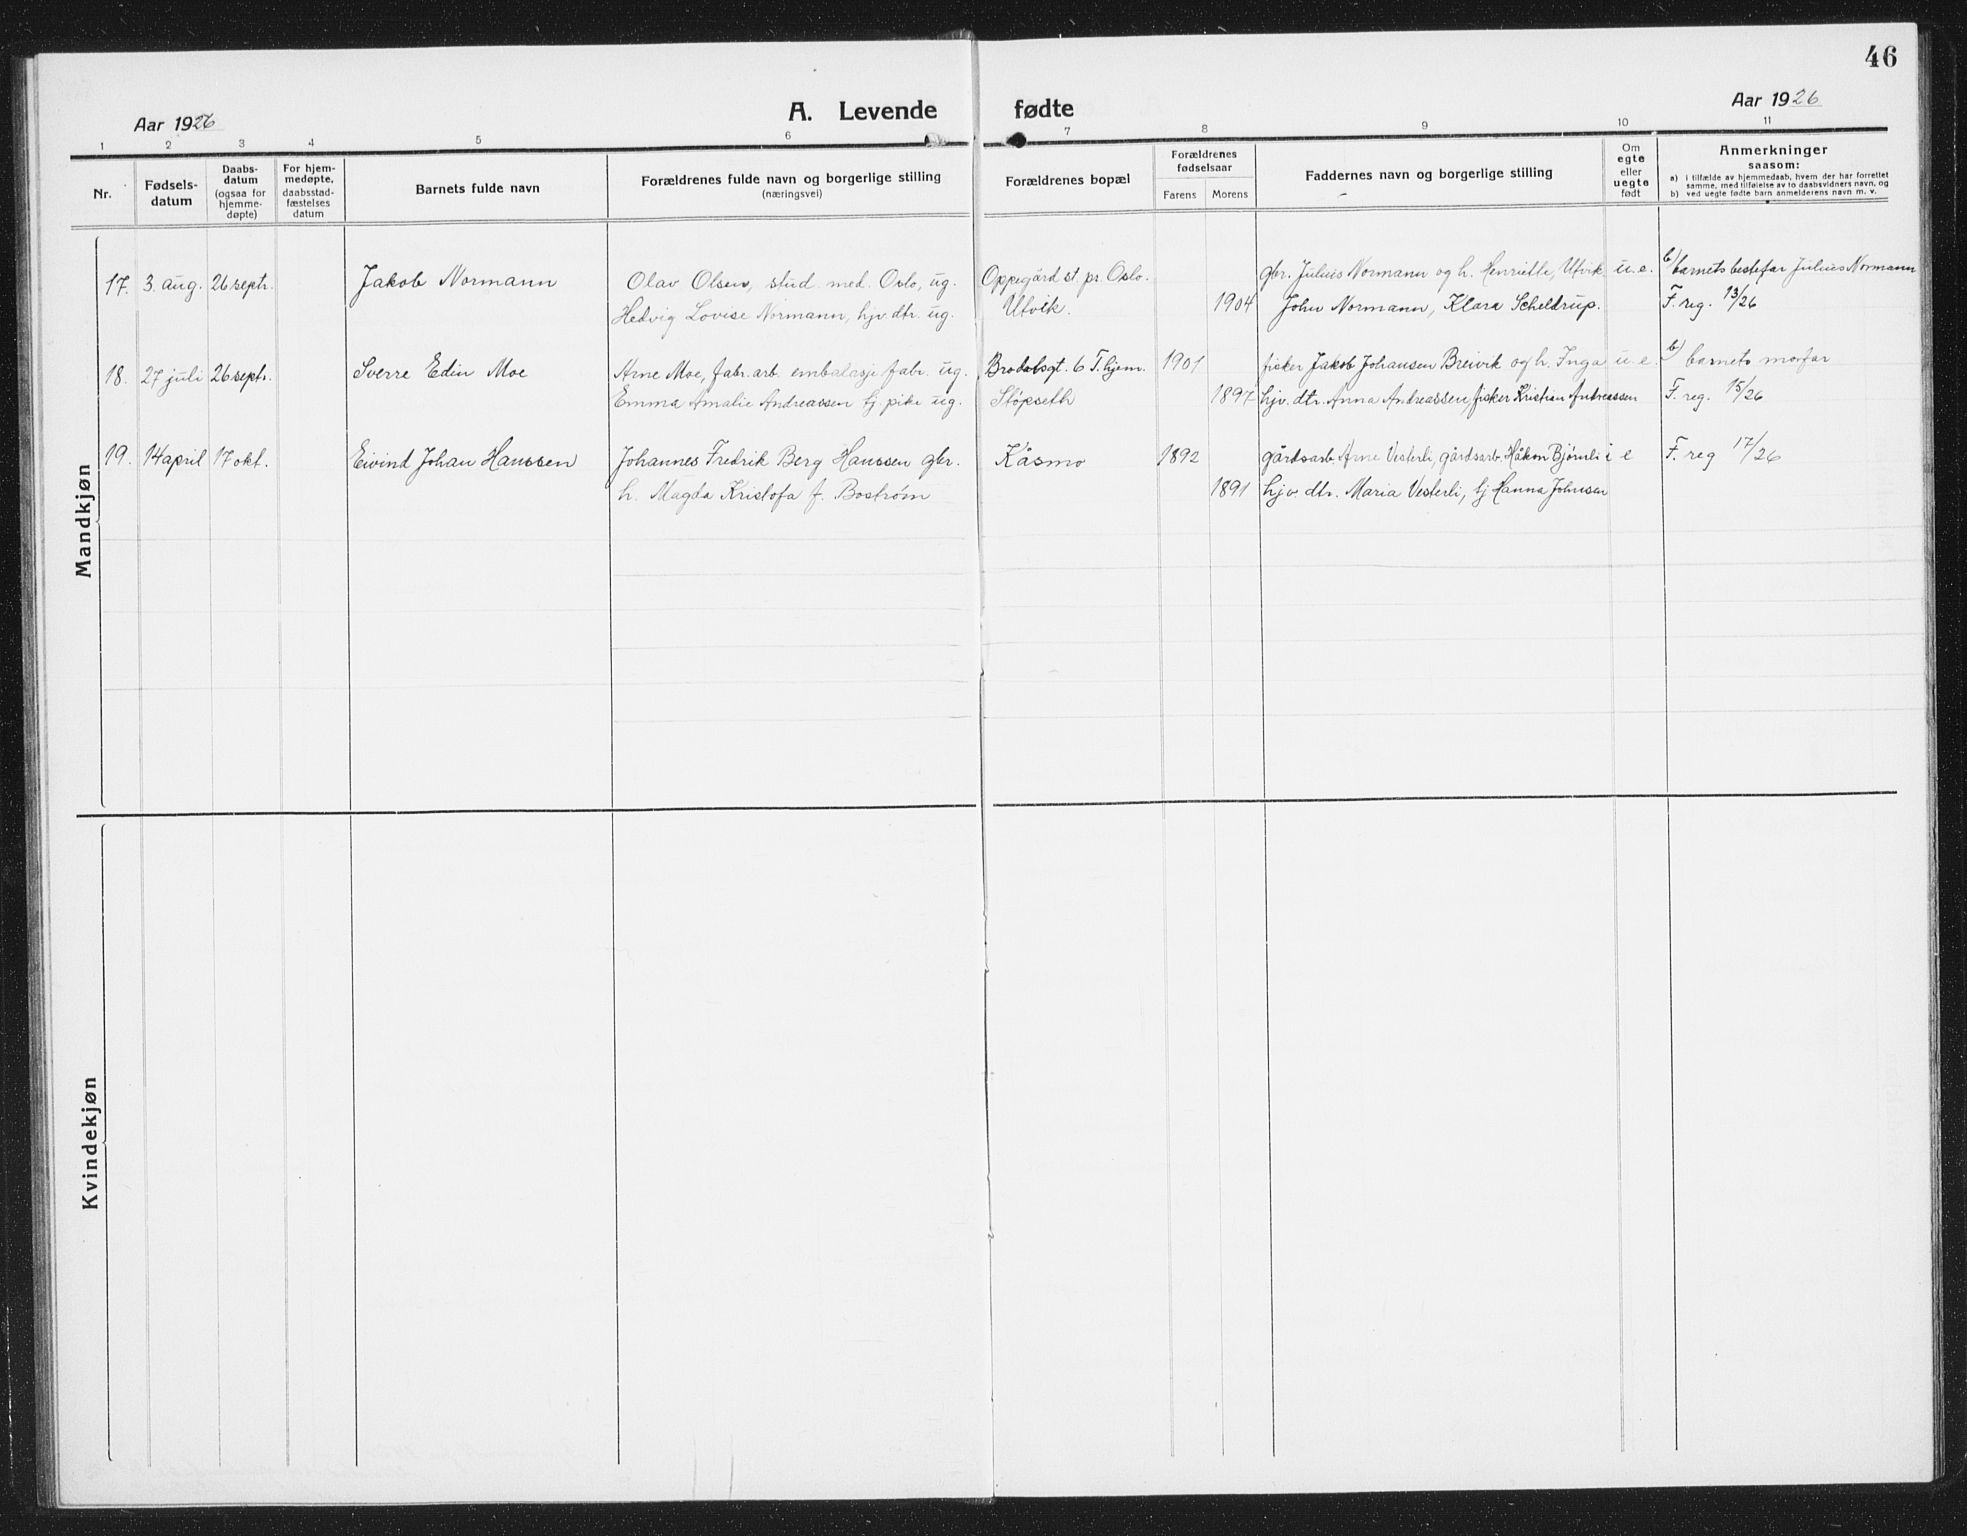 46
Aar 1926
A. Levende fødte
Aar 1926
1 2 3 4 5 6 7 8 9 10 11
Nr.
Fødsels-
datum
Daabs-
datum
(ogsaa for
hjemme-
døpte)
For hjem-
medøpte,
daabsstad-
fæstelses
datum
Barnets fulde navn
Forældrenes fulde navn og borgerlige stilling
(næringsvei)
Forældrenes bopæl
Forældrenes
fødselsaar
Farens Morens
Faddernes navn og borgerlige stilling
Om
egte
eller
uegte
født
Anmerkninger
saasom:
a) i tilfælde av hjemmedaab, hvem der har forrettet
samme, med tilføielse av to daabsvidners navn, og
b) ved uegte fødte barn anmelderens navn m. v.
Mandkjøn
17. 3. aug. 26 septr. Jakob Normann Olav Olsen, stud. med. Oslo, ug. Oppegård st. pr. Oslo. gbr. Julius Normann og h. Henriette, Utvik u.e. b) barnets bestefar Julius Normann
Hedvig Lovise Normann, hjv. dtr. ug. Utvik. 1904 John Normann, Klara Scheldrup. F. reg. 13/26
18. 27 juli 26 septr. Sverre Edin Moe Arne Moe, fabr. arb. embalasje fabr. ug. 6 T.hjem. 1901 fisker Jakob Johansen Breivik og h. Inga u.e. b) barnets morfar
Emma Amalie Andreassen tj. pike ug. Støpseth 1897 hjv. dtr. Anna Andreassen, fisker Kristian Andreassen F. reg. 15/26
19. 14 april 17 okt. Eivind Johan Hanssen Johannes Fredrik Berg Hanssen gbr. Kåsmo 1892 gårdsarb. Arne Vesterli, gårdsarb. Håkon Bjørnli i e F. reg 17/26
h. Magda Kristofa f. Bostrøm 1891 hjv. dtr. Maria Vesterli, tj Hanna Johnsen
Kvindekjøn